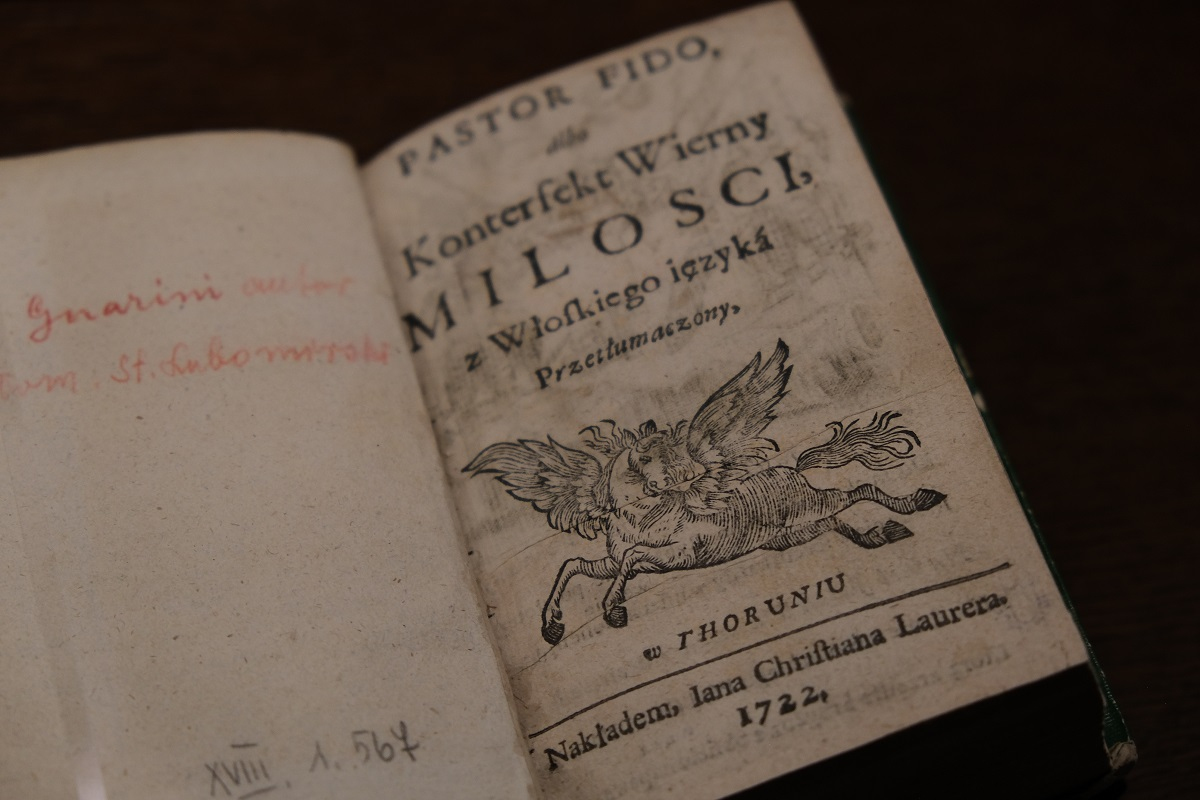 Guarini autor
tłum. St. Lubomirski
XVIII. 1. 567
PASTOR FIDO,
álbo
Konterfekt Wierny
MILOSCI,
z Włoſkiego ięzyká
Przetłumaczony,
w THORUNIU
Nakłádem, Iana Chriſtiana Laurera.
1722,